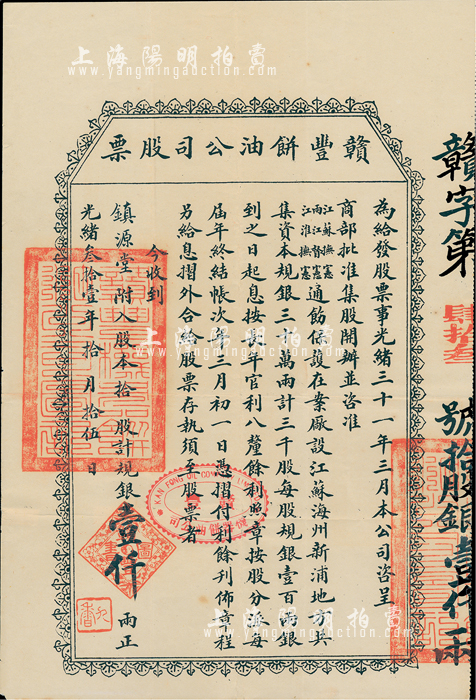 上海陽明拍賣
www.yangmingauction.com
贛豐餅油公司股票
為給發股票事光緒三十一年三月本公司咨呈
商部批准集股開辦並咨准
江蘇撫憲
兩江督憲
江淮撫憲
通飭保護在案廠設江蘇海州新浦地方共
集資本規銀三十萬兩計三千股每股規銀壹百兩銀
到之日起息按長年官利八釐餘利照章按股分派每
屆年終結帳次年三月初一日憑摺付利餘利佈章程
另給息摺外合給股票存執須至股票者
今收到
鎮源堂附入股本拾股計規銀壹仟兩正
光緒叁拾壹年拾月拾伍日
贛字第肆拾叁號拾股銀壹仟兩
KAN FONG OIL
上海陽明拍賣
www.yangmingauction.com